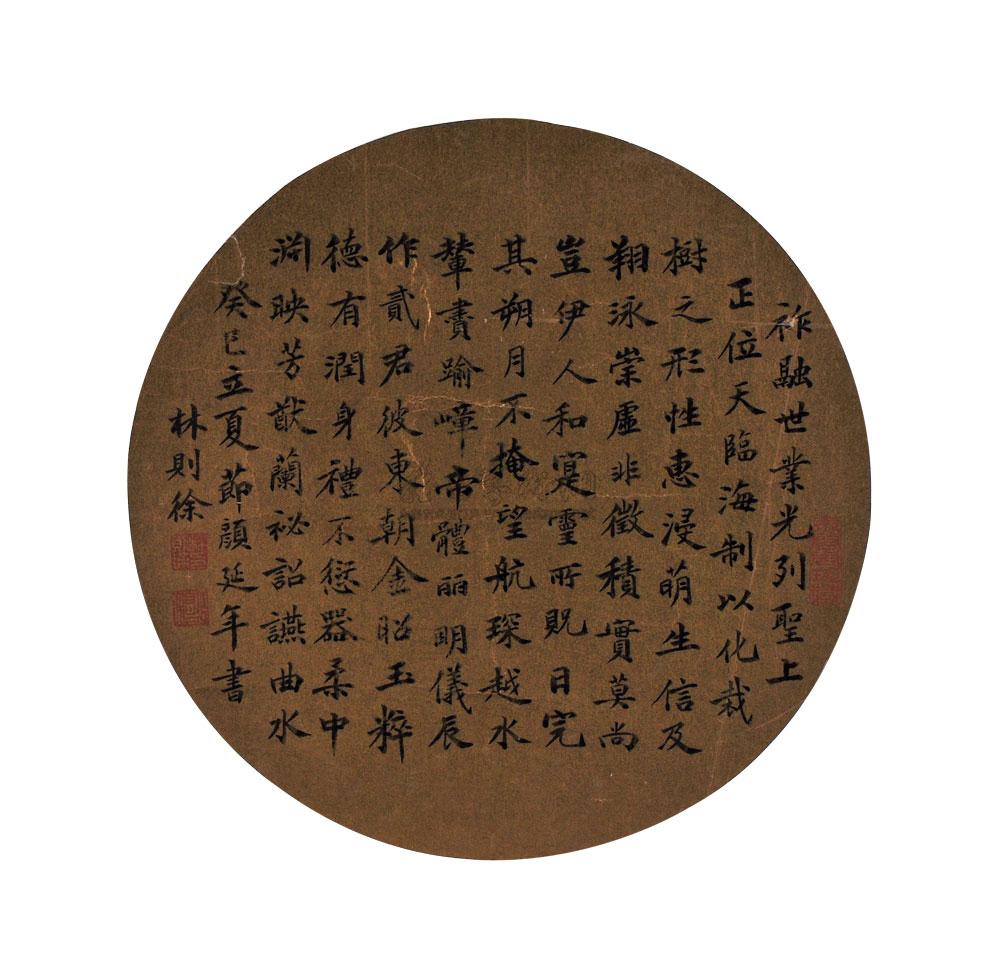 祚融世業光列聖上
正位天臨海制以化裁
樹之形性惠浸萌生信及
翔泳崇虛非徵積實莫尚
豈伊人和寔靈所貺日完
其朔月不掩望航琛越水
輦賮踰嶂帝體麗明儀辰
作貳君彼東朝金昭玉粹
德有潤身禮不愆器柔中
淵映芳猷蘭祕詔讌曲水
癸巳立夏節顏延年書
林則徐